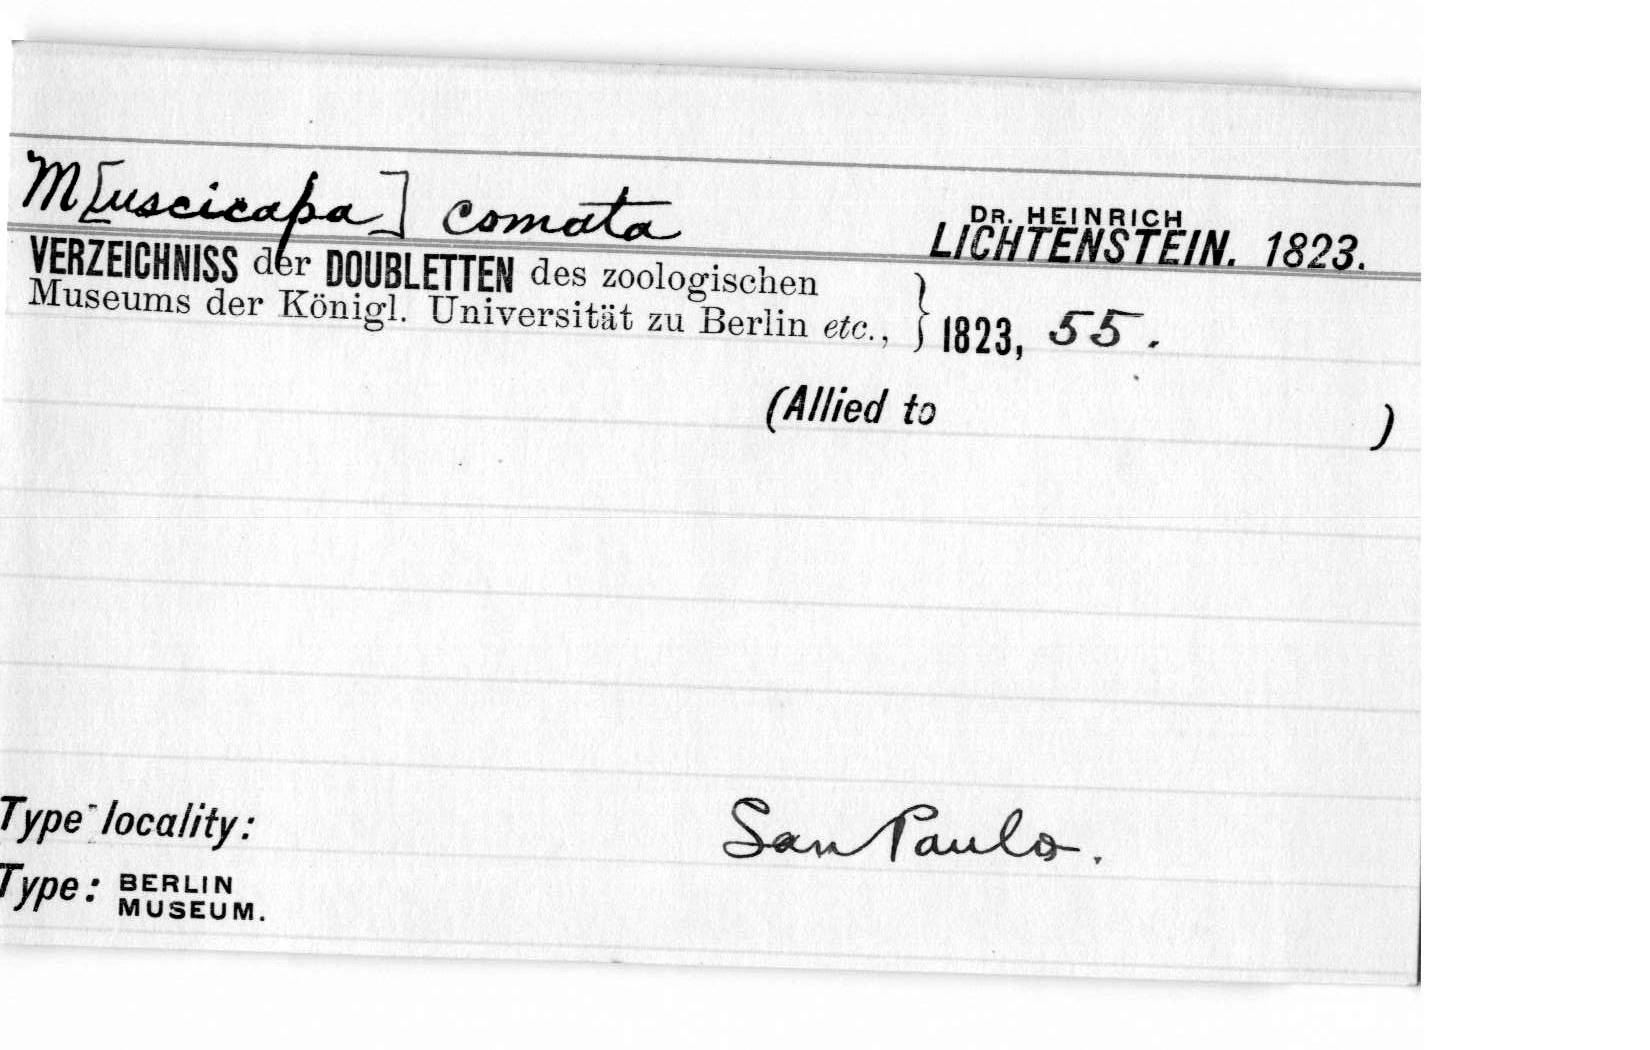 M[uscicapa] comata
DR. HEINRICH
LICHTENSTEIN. 1823.
VERZEICHNISS der DOUBLETTEN des zoologischen
Museums der Königl. Universität zu Berlin etc., } 1823, 55.
(Allied to )
Type locality: San Paulo.
Type: BERLIN
MUSEUM.